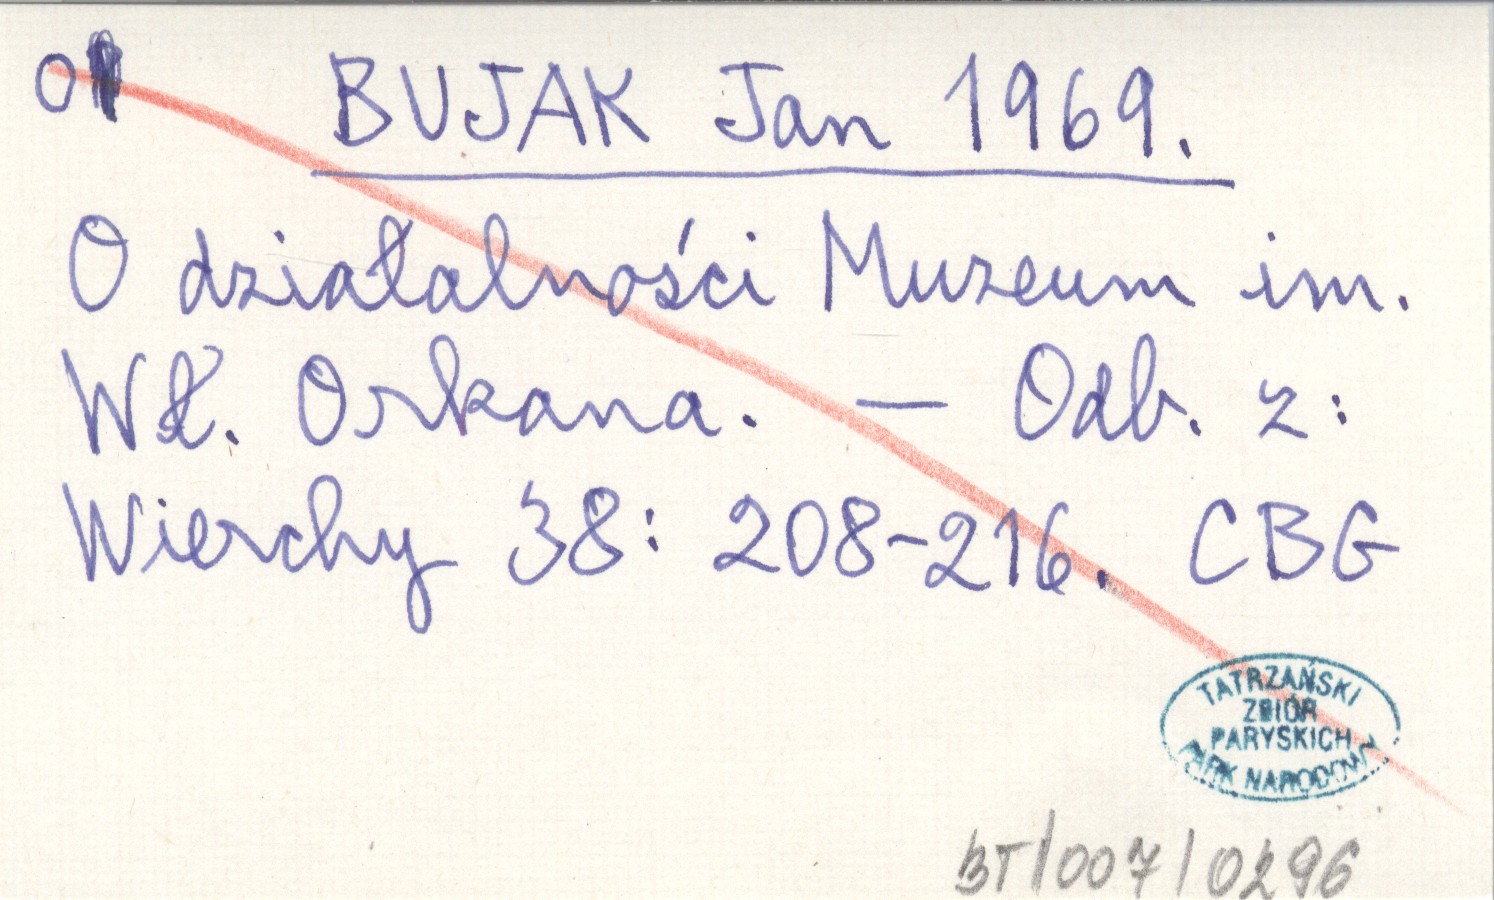 O
BUJAK Jan 1969.
O działalności Muzeum im.
Wł. Orkana. — Odb. z:
Wierchy 38: 208-216. CBG
TATRZAŃSKI
ZBIÓR
PARYSKICH
PARK NARODOWY
BT/007/0296